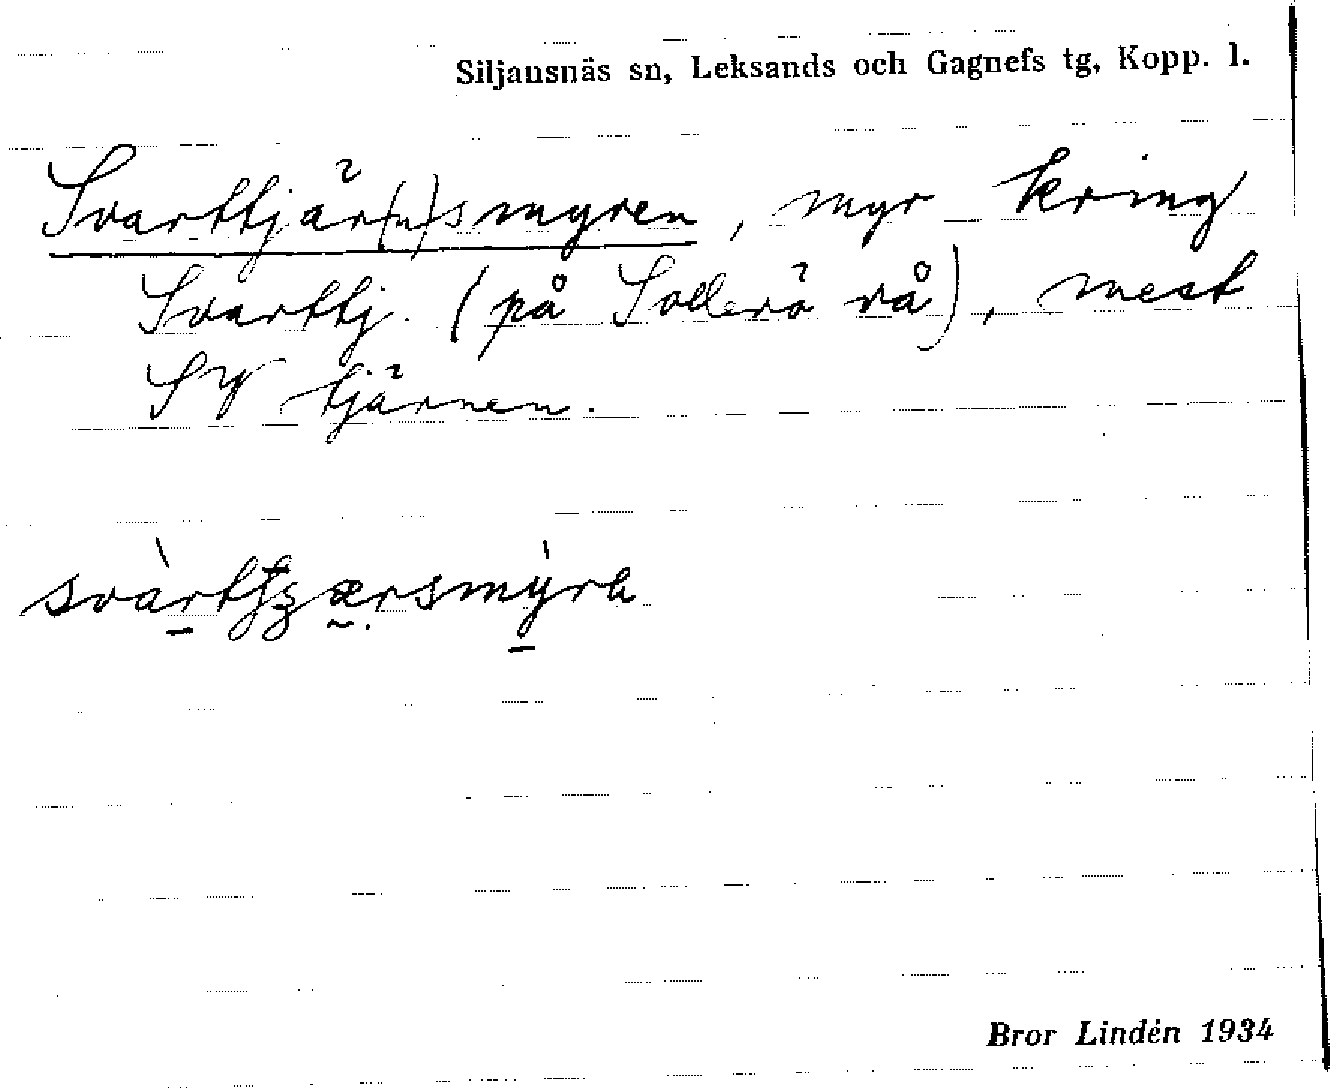 Siljansnäs sn, Leksands och Gagnefs tg, Kopp. l.
Svarttjär(n)smyren, myr kring
Svarttj. (på Sollerö rå), mest
SV tjärnen.
Bror Lindén 1934